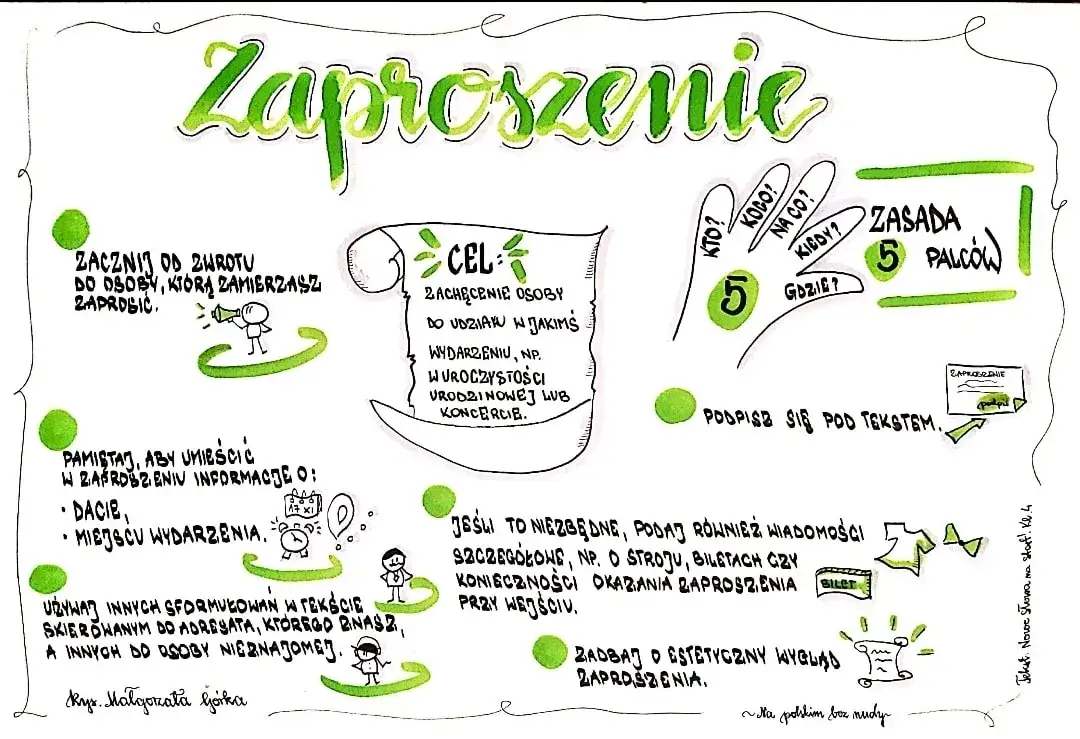 Zaproszenie
ZACZNIJ OD ZWROTU
DO OSOBY, KTÓRĄ ZAMIERZASZ
ZAPROSIĆ.
CEL:
ZACHĘCENIE OSOBY
DO UDZIAŁU W JAKIMŚ
WYDARZENIU, NP.
W UROCZYSTOŚCI
URODZINOWEJ LUB
KONCERCIE.
KTO?
KOGO?
NA CO?
KIEDY?
GDZIE?
5
ZASADA
5 PALCÓW
ZAPROSZENIE
podpis
PODPISZ SIĘ POD TEKSTEM.
PAMIĘTAJ, ABY UMIEŚCIĆ
W ZAPROSZENIU INFORMACJE O:
• DACIE,
• MIEJSCU WYDARZENIA.
17 XI
JEŚLI TO NIEZBĘDNE, PODAJ RÓWNIEŻ WIADOMOŚCI
SZCZEGÓŁOWE, NP. O STROJU, BILETACH CZY
KONIECZNOŚCI OKAZANIA ZAPROSZENIA
PRZY WEJŚCIU.
BILET
UŻYWAJ INNYCH SFORMUŁOWAŃ W TEKŚCIE
SKIEROWANYM DO ADRESATA, KTÓREGO ZNASZ,
A INNYCH DO OSOBY NIEZNAJOMEJ.
ZADBAJ O ESTETYCZNY WYGLĄD
ZAPROSZENIA.
Rys. Małgorzata Górka
~Na polskim bez nudy~
Tekst: Nowe słowa na start! Kl. 4